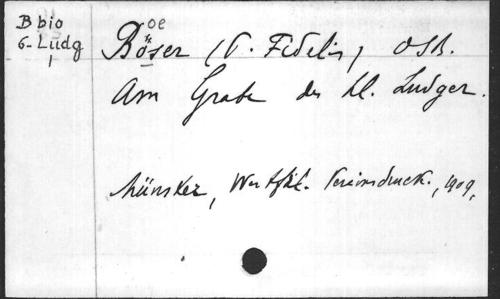 B bio
6-Lüdg
oe
Böser (P. Fidelis) OSB.
Am Grabe des hl. Ludger.
Münster, Westfäl. Vereinsdruck., 1909,